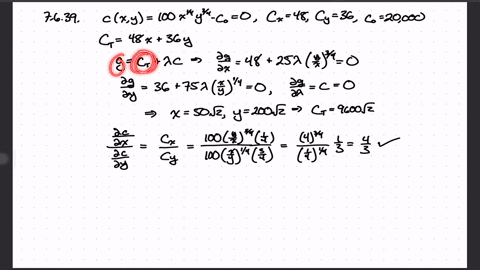 7.6.39. c(x,y) = 100x^{1/4}y^{3/4} - c₀ = 0, Cx = 48, Cy = 36, c₀ = 20,000
C_T = 48x + 36y
g = C_T + λC ⇒ ∂g/∂x = 48 + 25λ(y/x)^{3/4} = 0
∂g/∂y = 36 + 75λ(x/y)^{1/4} = 0, ∂g/∂λ = C = 0
⇒ x = 50√2, y = 200√2 ⇒ C_T = 9600√2
(∂c/∂x)/(∂c/∂y) = Cx/Cy = (100(y/x)^{3/4}(1/4))/(100(x/y)^{1/4}(3/4)) = ((4)^{3/4})/((1/4)^{1/4}) 1/3 = 4/3 ✓